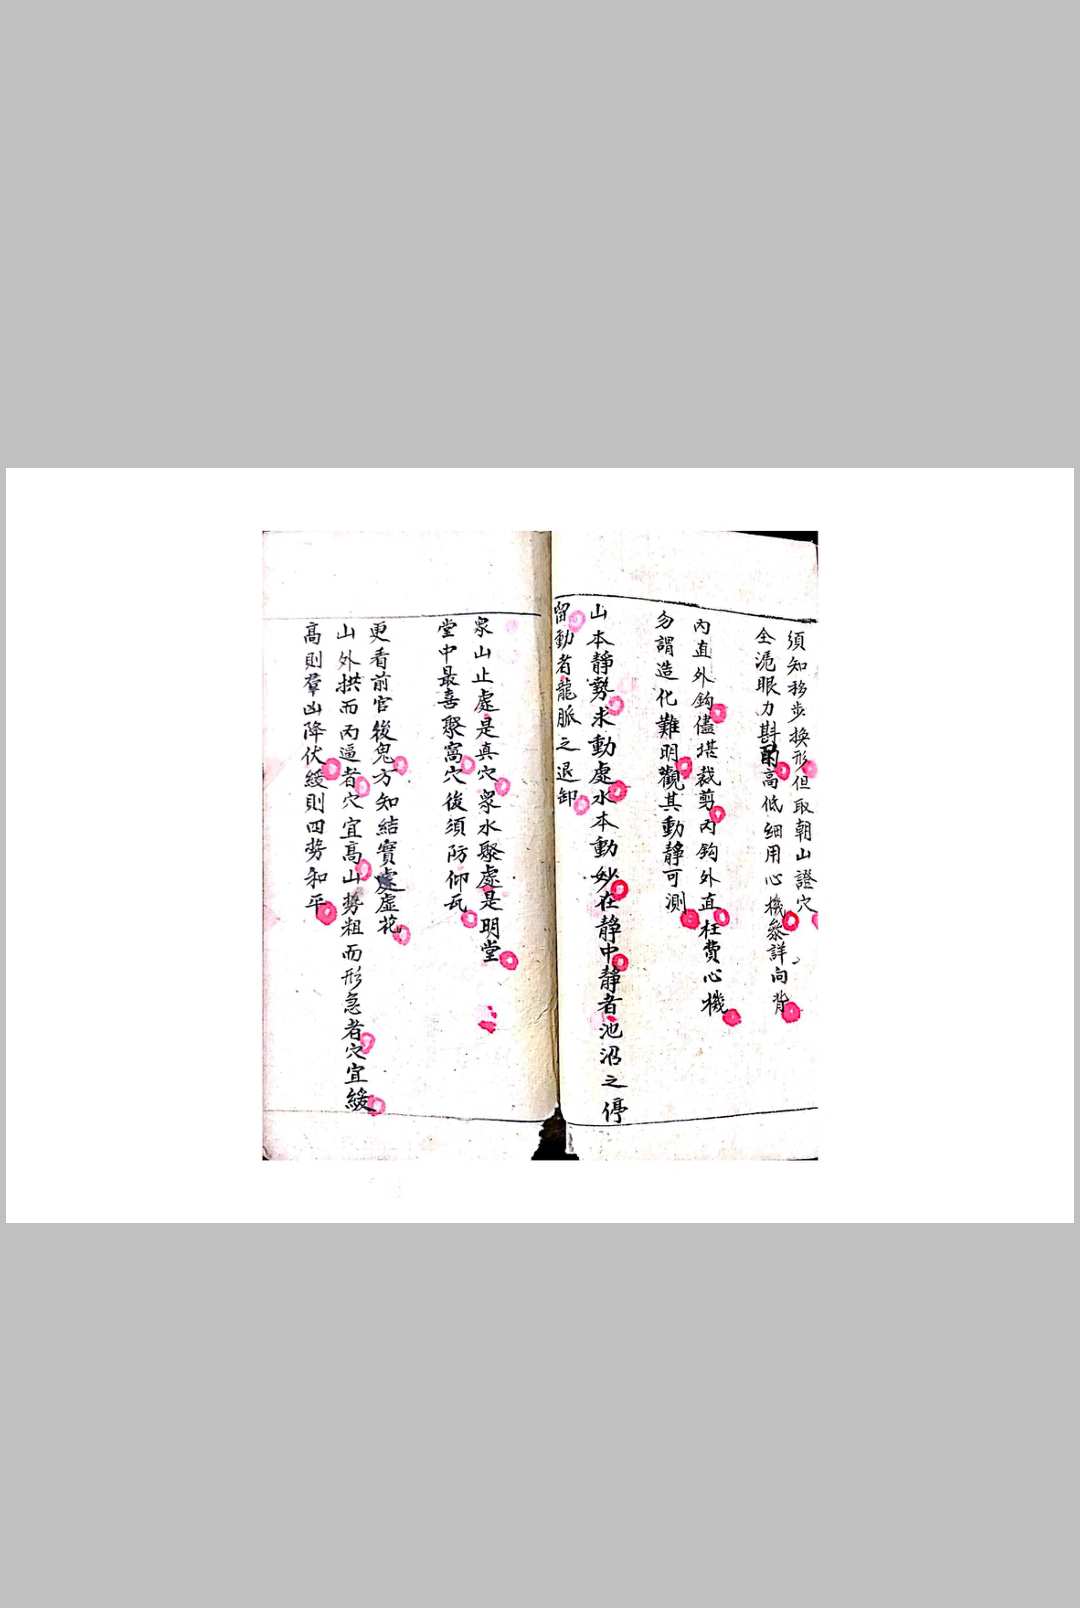 須知移步換形但取朝山證穴
全憑眼力斟酌高低細用心機參詳向背
內直外鈎儘堪裁剪內鈎外直枉費心機
勿謂造化難明觀其動靜可測
山本靜勢求動處水本動妙在靜中靜者池沼之停
留動者龍脈之退卸
眾山止處是真穴眾水聚處是明堂
堂中最喜聚窩穴後須防仰瓦
更看前官後鬼方知結實處虛花
山外拱而內逼者穴宜高山勢粗而形急者穴宜緩
高則羣凶降伏緩則四势和平